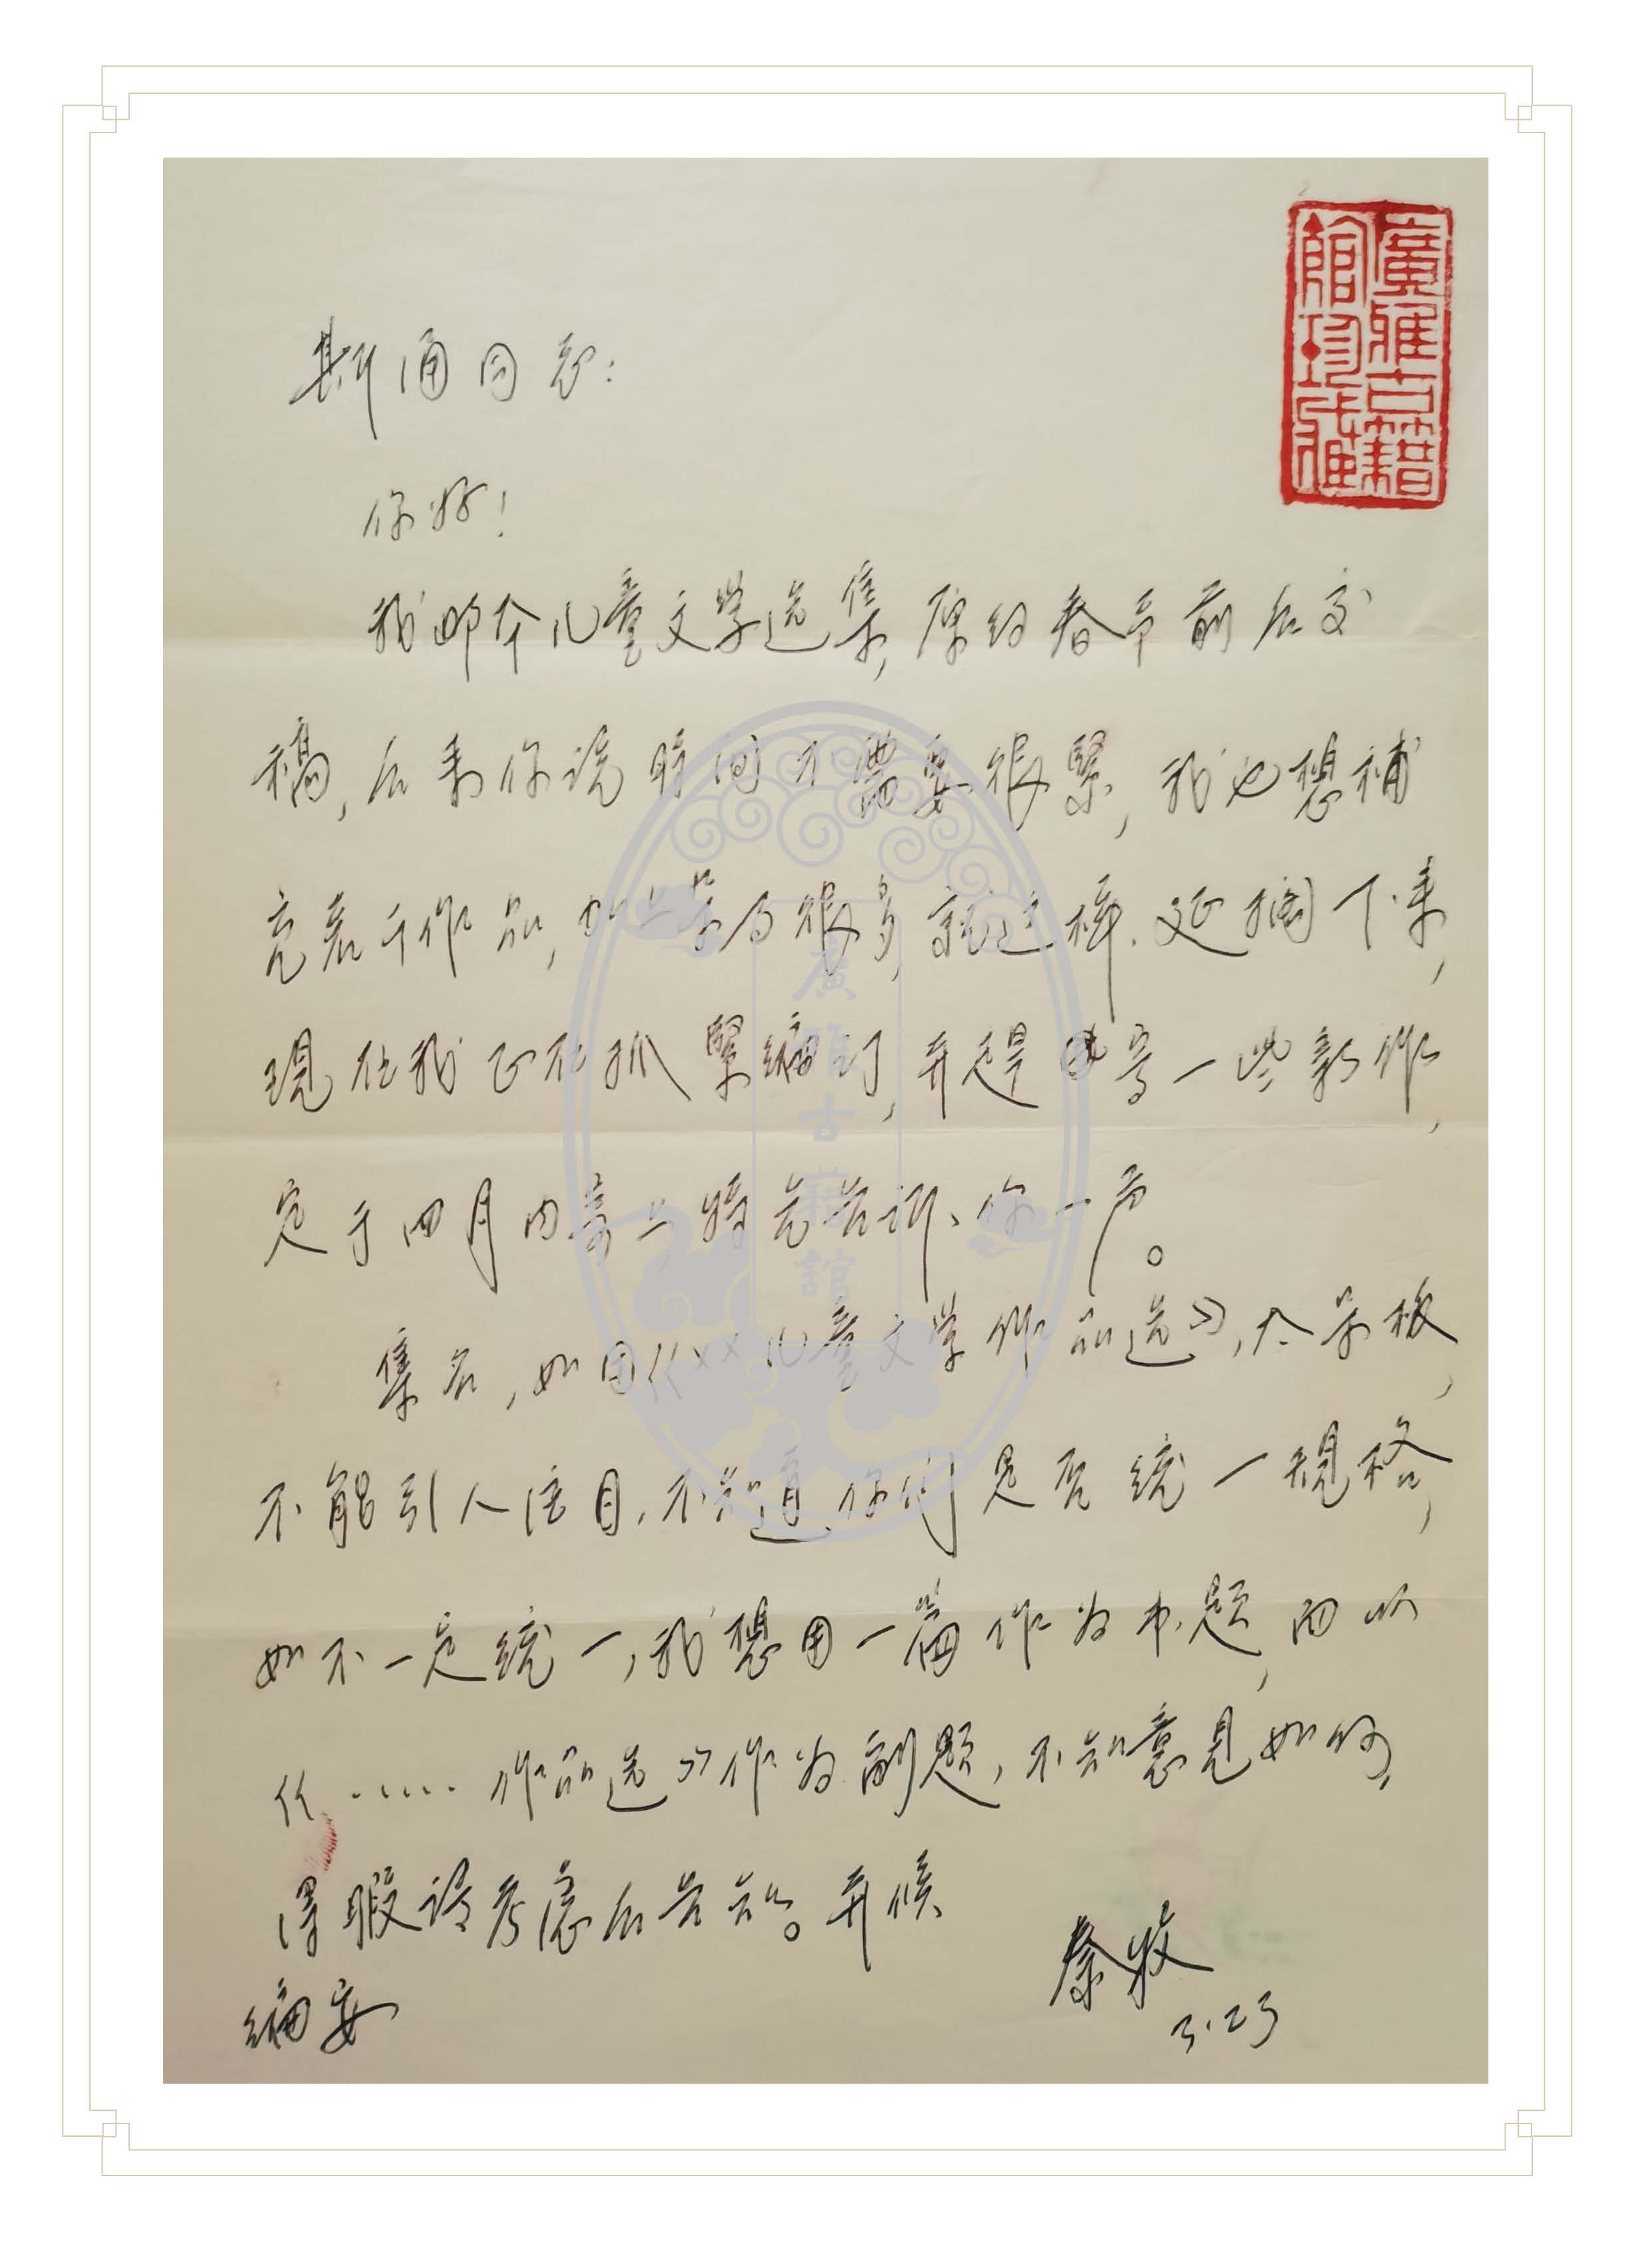 廣雅古籍
館珍藏
斯通同志：
你好！
我那本儿童文学选集，原约春节前后交
稿，后来你说时间不需要很紧，我也想补
充若干作品，加上杂务很多，就这样延搁下来，
现在我正在抓紧编订，并赶写一些新作，
定于四月内寄上特先告诉你一声。
集名，如用《××儿童文学作品选》，太呆板，
不能引人注目，不知道你们是否统一规格，
如不一定统一，我想用一篇作为书题，而以
《……作品选》作为副题，不知意见如何，
得暇请考虑后告知。并候
编安
秦牧
3.23
廣雅古籍館